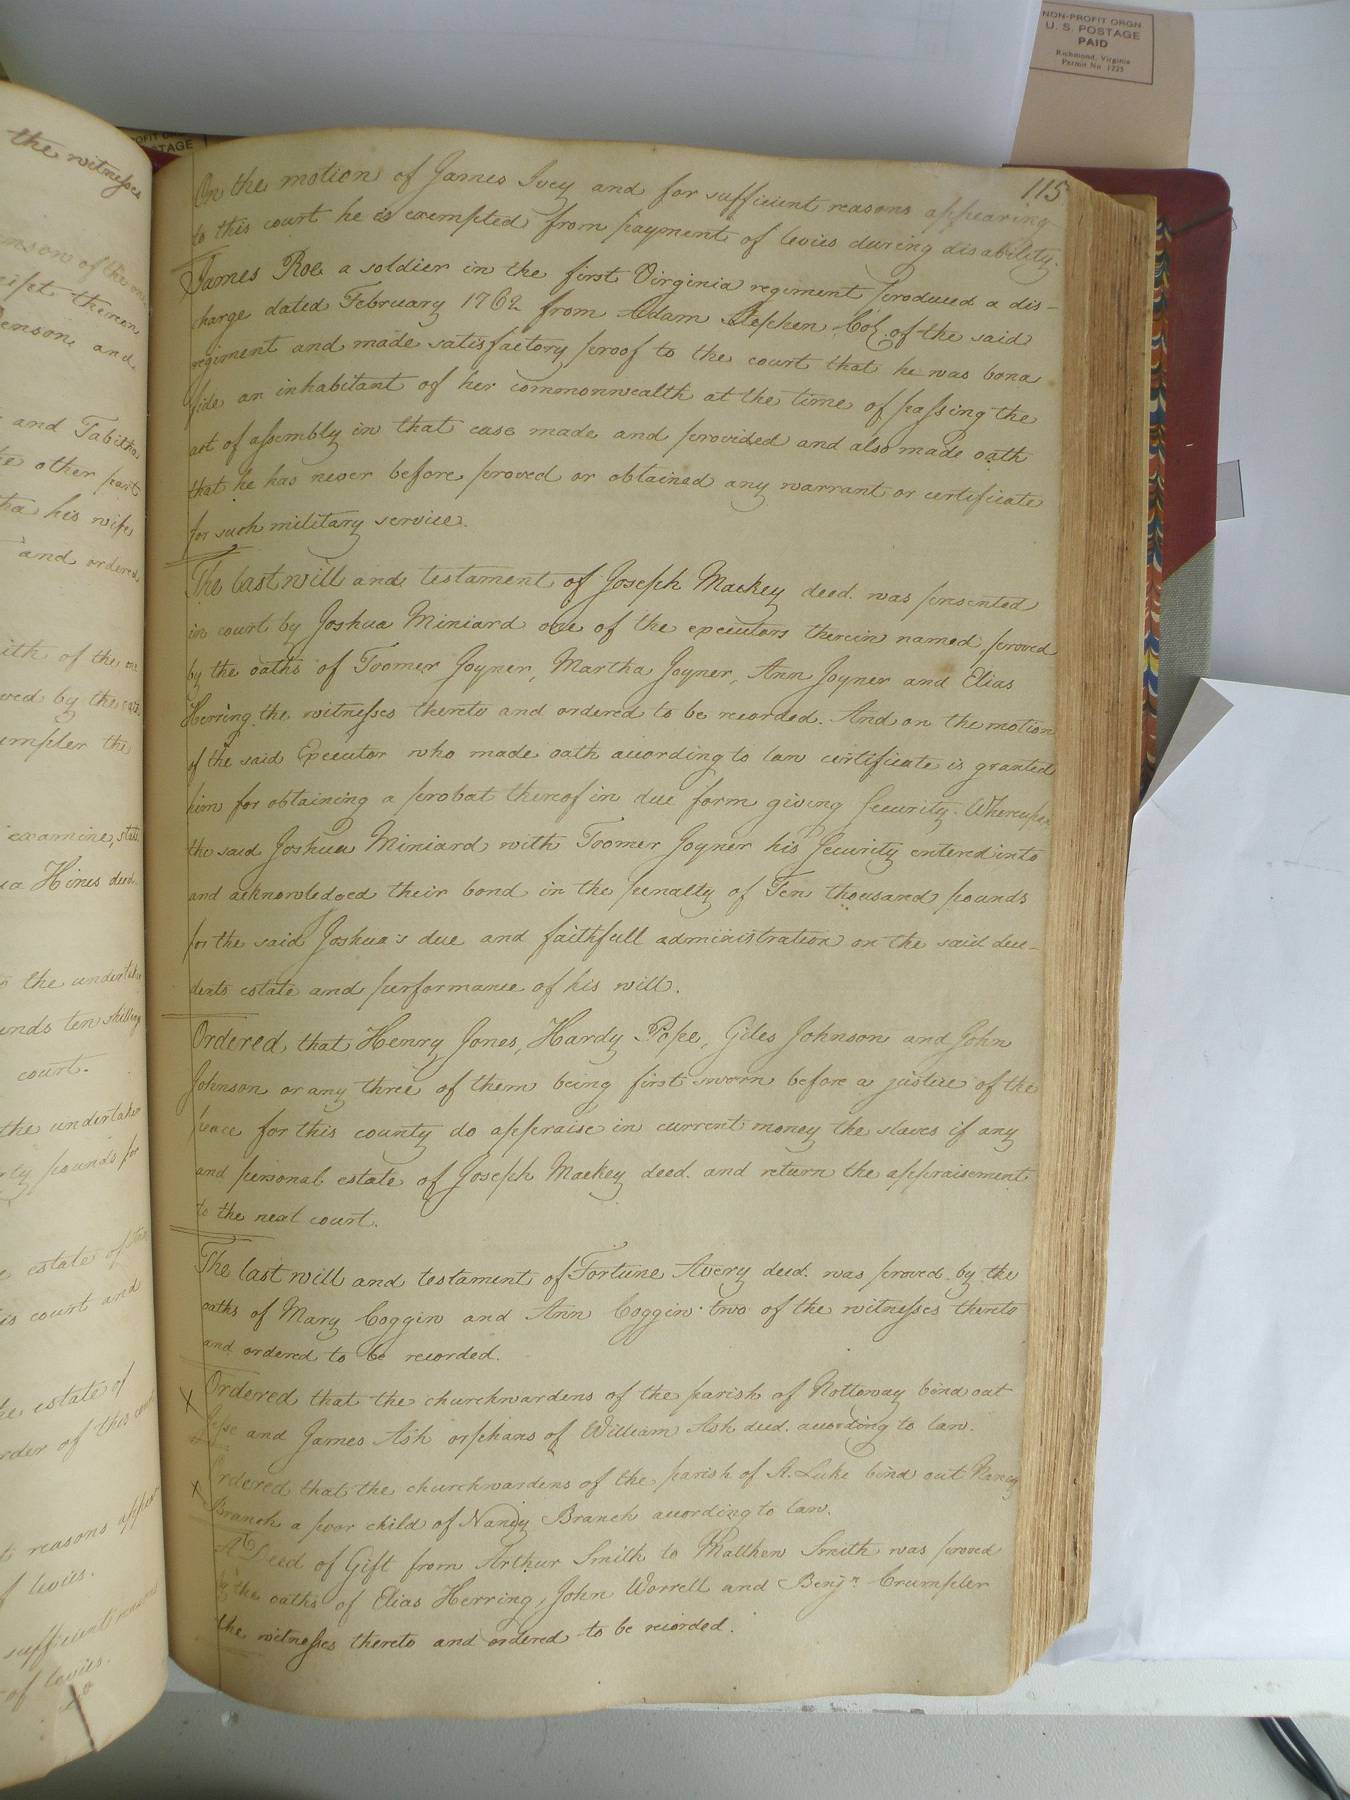 NON-PROFIT ORGN
U. S. POSTAGE
PAID
Richmond, Virginia
Permit No. 1225
STAGE
the witnesses
of the one
thereon
and
and Tabitha
the other part
his wife
and ordered
ith of the one
ved by the oaths
umpler the
examine, state
Hines decd.
to the undertaker
unds ten shillings
court.
the undertaker
pounds for
estate of
is court and
the estate of
order of this court
reasons appear
of levies.
sufficient reasons
of levies.
115
On the motion of James Ivey and for sufficient reasons appearing
to this court he is exempted from payment of levies during disability.
James Roe a soldier in the first Virginia regiment produced a dis-
charge dated February 1762 from Adam Stephen Col. of the said
regiment and made satisfactory proof to the court that he was bona
fide an inhabitant of her commonwealth at the time of passing the
act of assembly in that case made and provided and also made oath
that he has never before proved or obtained any warrant or certificate
for such military service.
The last will and testament of Joseph Mackey decd. was presented
in court by Joshua Miniard one of the executors therein named, proved
by the oaths of Toomer Joyner, Martha Joyner, Ann Joyner and Elias
Herring the witnesses thereto and ordered to be recorded. And on the motion
of the said Executor who made oath according to law certificate is granted
him for obtaining a probat thereof in due form giving Security. Whereupon
the said Joshua Miniard with Toomer Joyner his Security entered into
and acknowledged their bond in the penalty of Ten thousand pounds
for the said Joshua's due and faithfull administration on the said dece-
dents estate and performance of his will.
Ordered that Henry Jones, Hardy Pope, Giles Johnson and John
Johnson or any three of them being first sworn before a justice of the
peace for this county do appraise in current money the slaves if any
and personal estate of Joseph Mackey decd. and return the appraisement
to the next court.
The last will and testament of Fortune Avery decd. was proved by the
oaths of Mary Coggin and Ann Coggin two of the witnesses thereto
and ordered to be recorded.
X Ordered that the churchwardens of the parish of Nottoway bind out
Jesse and James Ash orphans of William Ash decd. according to law.
X Ordered that the churchwardens of the parish of St. Luke bind out Nancy
Branch a poor child of Nancy Branch according to law.
A Deed of Gift from Arthur Smith to Matthew Smith was proved
by the oaths of Elias Herring, John Worrell and Benjn. Crumpler
the witnesses thereto and ordered to be recorded.